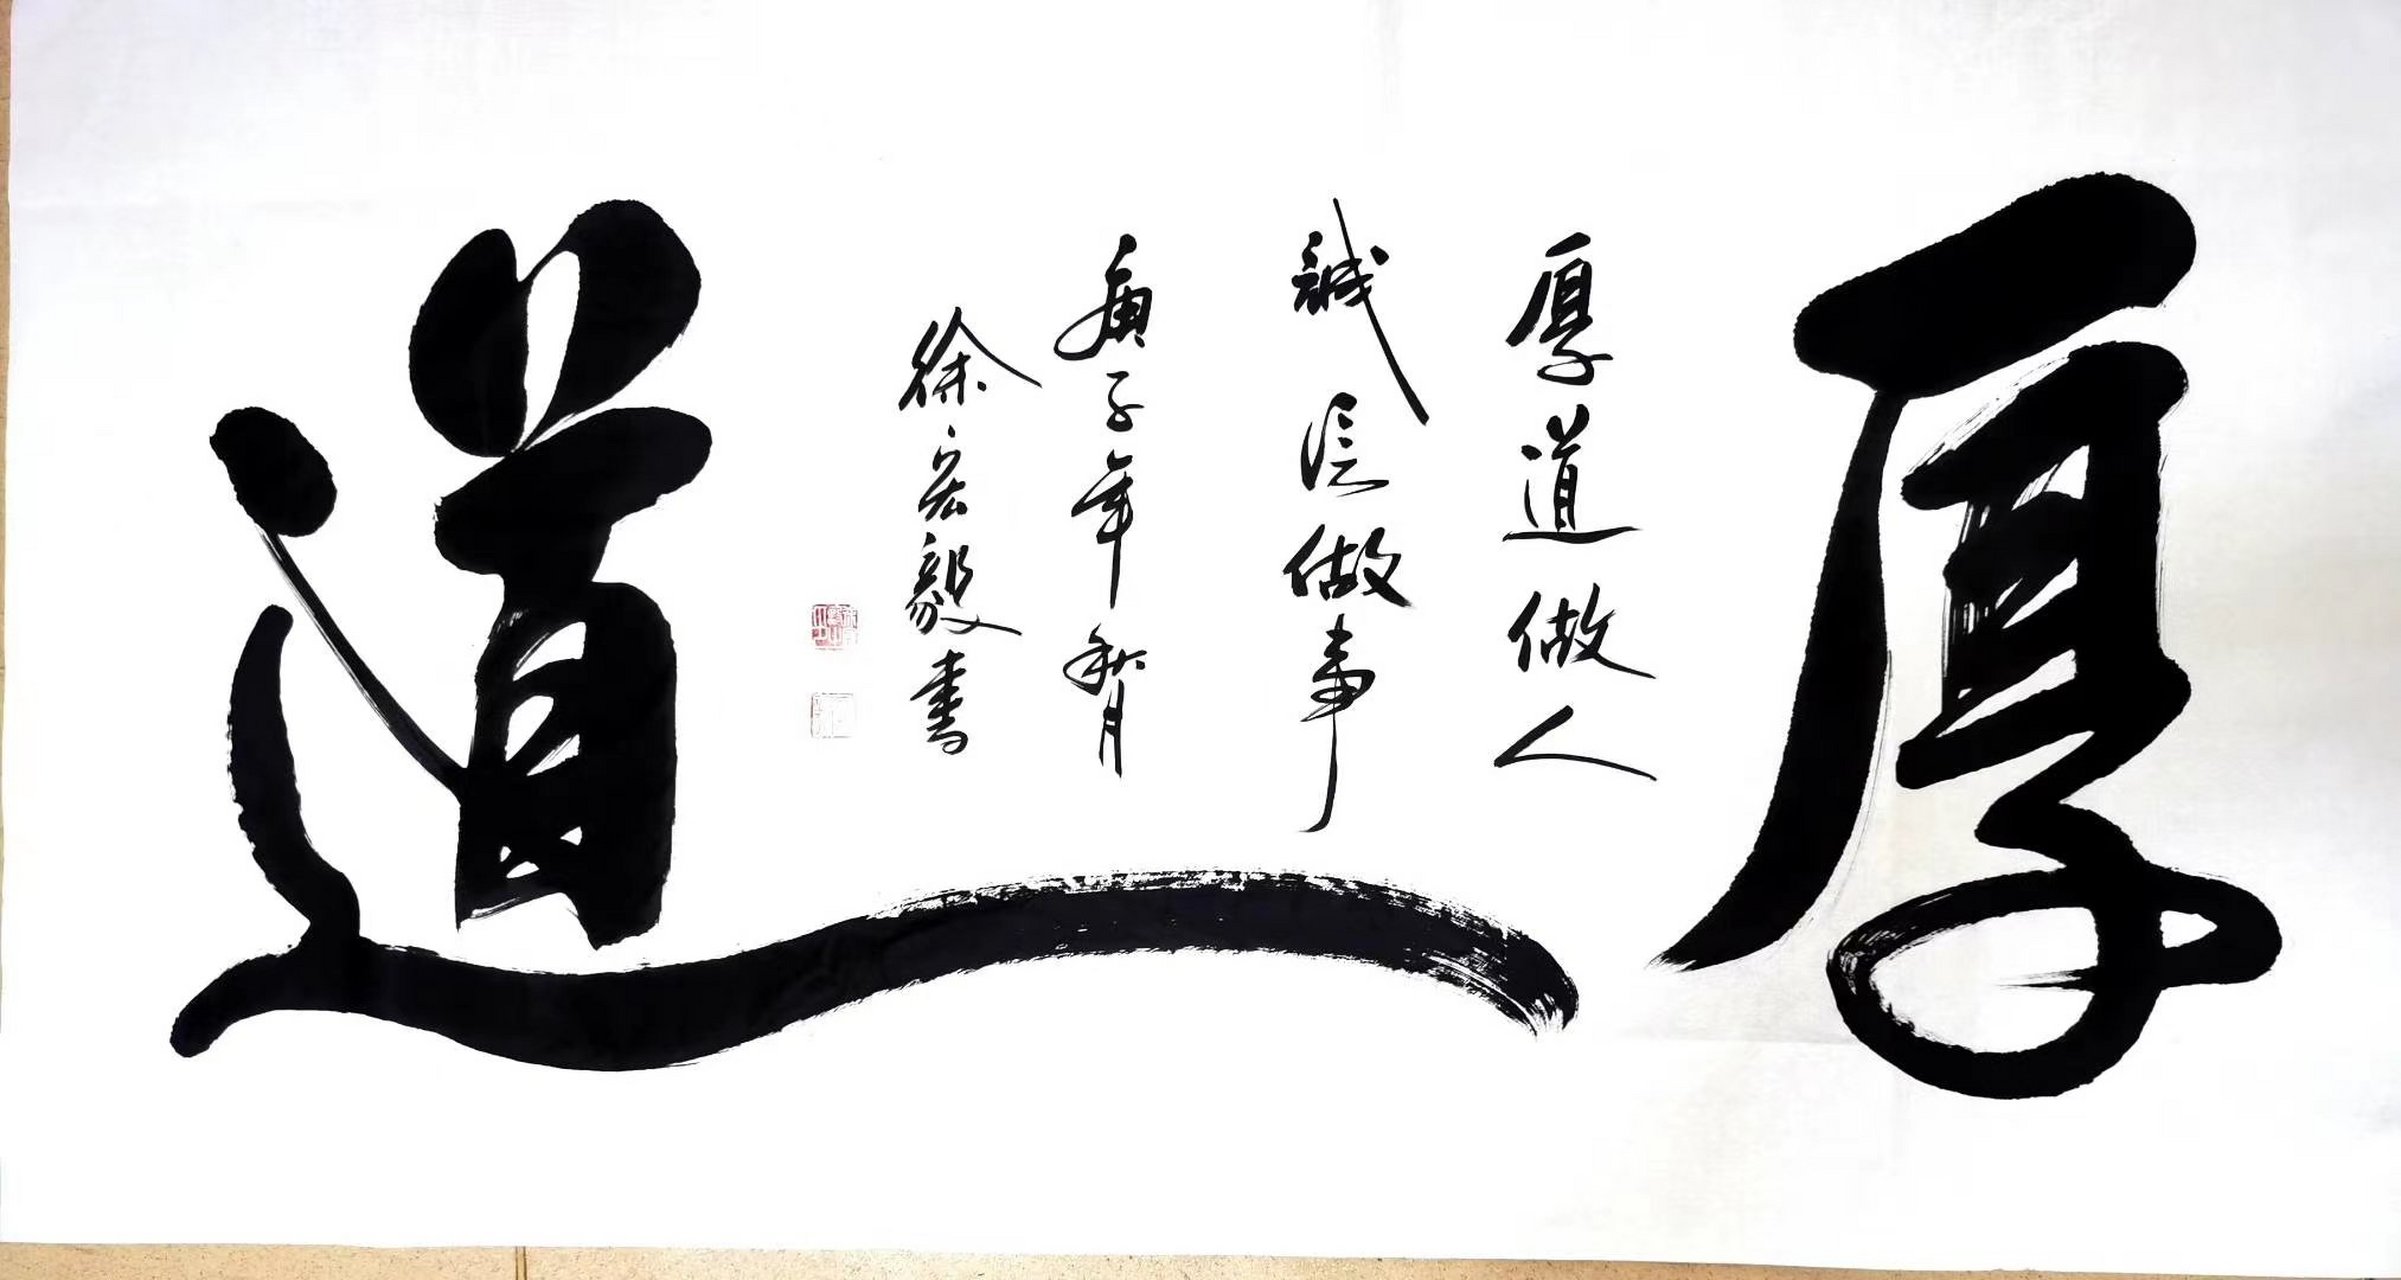 厚道
厚道做人
誠信做事
庚子年秋月
徐宏毅書